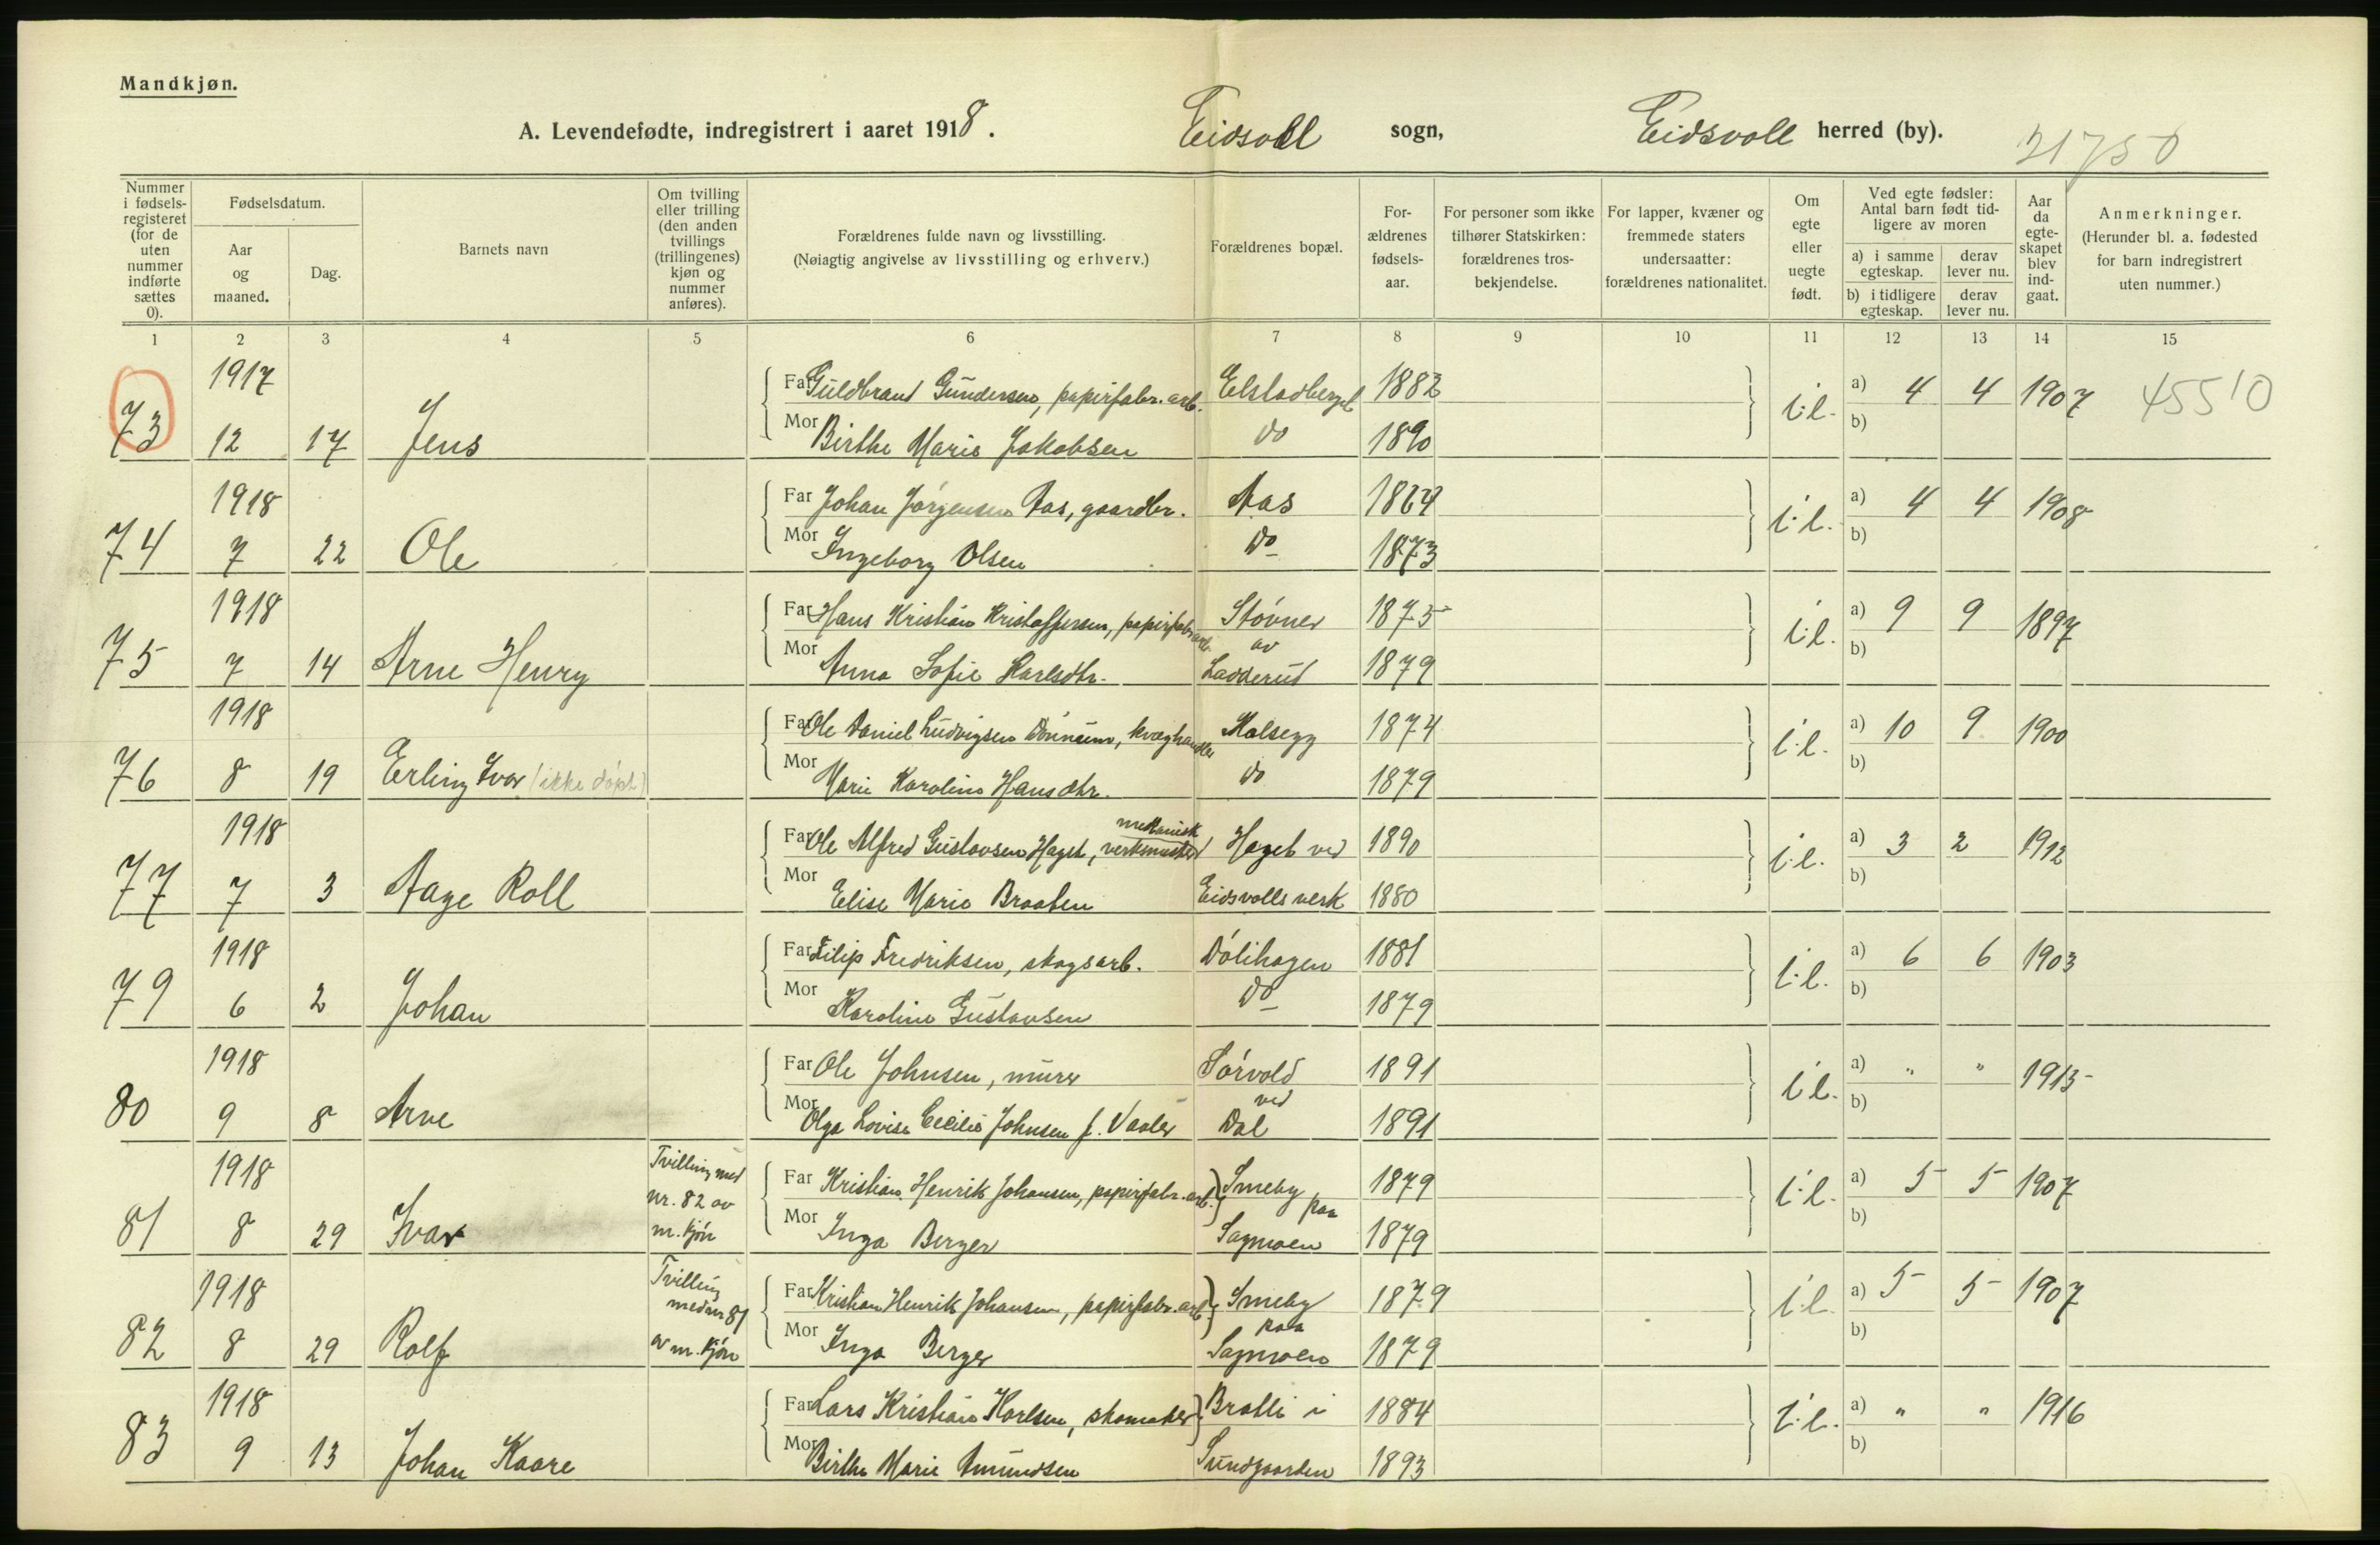 Mandkjøn.
A. Levendefødte, indregistrert i aaret 1918. Eidsvoll sogn, Eidsvoll herred (by). 21750
Nummer i fødselsregisteret (for de uten nummer indførte sættes 0).
Fødselsdatum.
Aar og maaned.
Dag.
Barnets navn
Om tvilling eller trilling (den anden tvillings (trillingenes) kjøn og nummer anføres).
Forældrenes fulde navn og livsstilling.
(Nøiagtig angivelse av livsstilling og erhverv.)
Forældrenes bopæl.
For-ældrenes fødsels-aar.
For personer som ikke tilhører Statskirken: forældrenes tros-bekjendelse.
For lapper, kvæner og fremmede staters undersaatter: forældrenes nationalitet.
Om egte eller uegte født.
Ved egte fødsler: Antal barn født tid-ligere av moren
a) i samme egteskap.
derav lever nu.
b) i tidligere egteskap.
derav lever nu.
Aar da egte-skapet blev ind-gaat.
Anmerkninger.
(Herunder bl. a. fødested for barn indregistrert uten nummer.)
1 2 3 4 5 6 7 8 9 10 11 12 13 14 15
1917 Far Guldbrand Gundersen, papirfabr.arb. 1882 a) 4 4 1907 45510
73 12 17 Jens Mor Birthe Marie Jakobsen do 1890 i.l. b)
1918 Far Johan Jørgensen Aas, gaardbr. Aas 1864 a) 4 4 1908
74 7 22 Ole Mor Ingeborg Olsen do 1873 i.l. b)
1918 Far Hans Kristian Kristoffersen, papirfabrarb. Støvner 1875 a) 9 9 1897
75 7 14 Arne Henry Mor Anna Sofie Karlsdtr. av Ladderud 1879 i.l. b)
1918 Far Ole Daniel Ludvigsen Dønnum, kvæghandler 1874 a) 10 9 1900
76 8 19 Erling Ivar (ikke døpt) Mor Marie Karoline Hansdtr. do 1879 i.l. b)
1918 Far Ole Alfred Gustavsen Haget, mekanisk verksmester Haget ved 1890 a) 3 2 1912
77 7 3 Aage Roll Mor Elise Marie Braaten Eidsvolls verk 1880 i.l. b)
1918 Far Filip Fredriksen, skogsarb. Dølihagen 1881 a) 6 6 1903
79 6 2 Johan Mor Karoline Gustavsen do 1879 i.l. b)
1918 Far Ole Johnsen, murer Sørvold 1891 a) " " 1915
80 9 8 Arne Mor Olga Lovise Cecilie Johnsen f. Vaaler ved Dal 1891 i.l. b)
1918 Tvilling med nr. 82 av m. kjøn Far Kristian Henrik Johansen, papirfabr.arb. Smeby 1879 a) 5 5 1907
81 8 29 Ivar Mor Inga Berger paa Sagmoen 1879 i.l. b)
1918 Tvilling med nr 81 av m. kjøn Far Kristian Henrik Johansen, papirfabr.arb. Smeby 1879 a) 5 5 1907
82 8 29 Rolf Mor Inga Berger paa Sagmoen 1879 i.l. b)
1918 Far Lars Kristian Karlsen, skomaker Bratli i 1884 a) " " 1916
83 9 13 Johan Kaare Mor Birthe Marie Amundsen Sundgaarden 1893 i.l. b)